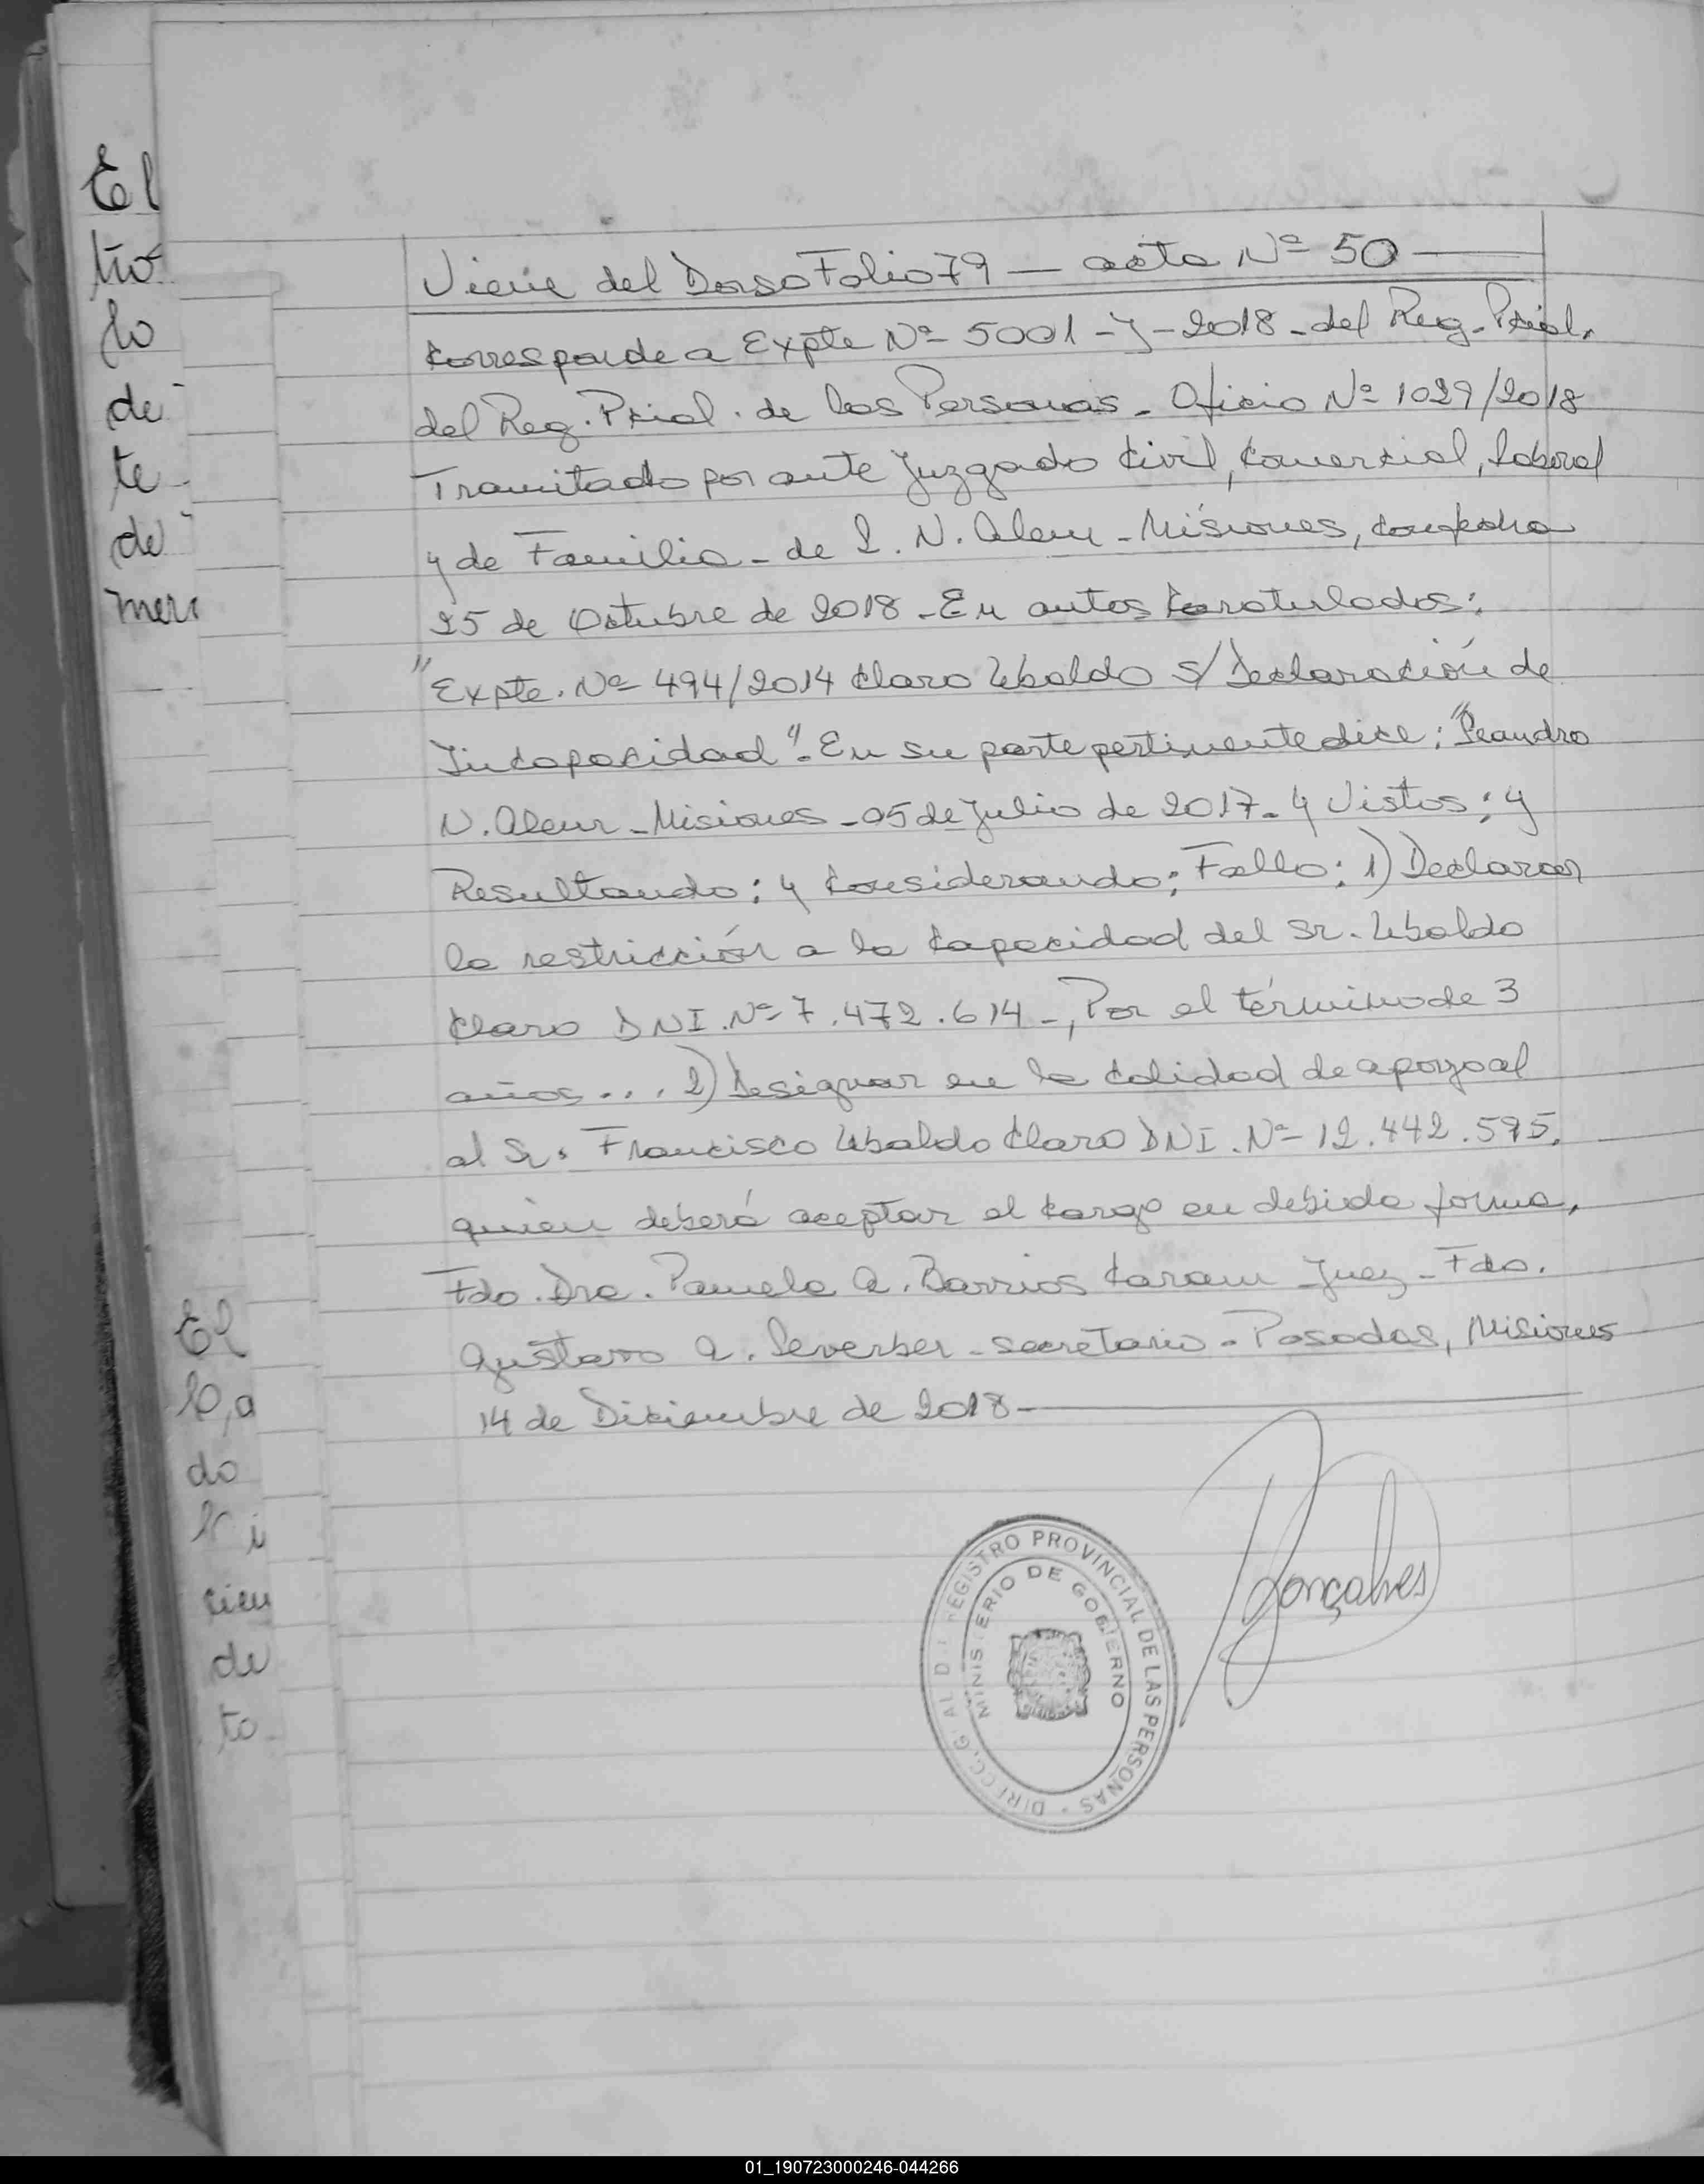 Viene del Dorso Folio 79 — acta Nº 50 —
Corresponde a Expte Nº 5001 - J - 2018 - del Reg. Pcial.
del Reg. Pcial. de las Personas - Oficio Nº 1029/2018
Tramitado por ante Juzgado Civil, Comercial, Laboral
y de Familia - de L. N. Alem - Misiones, con fecha
25 de Octubre de 2018 - En autos Caratulados:
"Expte. Nº 494/2014 Claro Ubaldo S/ Declaración de
Incapacidad". En su parte pertinente dice: "Leandro
N. Alem - Misiones - 05 de Julio de 2017 - y Vistos: y
Resultando: y Considerando: Fallo: 1) Declarar
la restricción a la Capacidad del Sr. Ubaldo
Claro DNI. Nº 7.472.614 -, Por el término de 3
años . . . 2) Designar en la Calidad de apoyo al
al Sr. Francisco Ubaldo Claro DNI. Nº 12.442.595.
quien deberá aceptar el Cargo en debida forma.
Fdo. Dra. Pamela A. Barrios Caram Juez - Fdo.
Gustavo A. Leverber - secretario - Posadas, Misiones
14 de Diciembre de 2018 —
Gonçalves
REGISTRO PROVINCIAL DE LAS PERSONAS
MINISTERIO DE GOBIERNO
El
lo
de
te
de
El
do
de
to
01_190723000246-044266